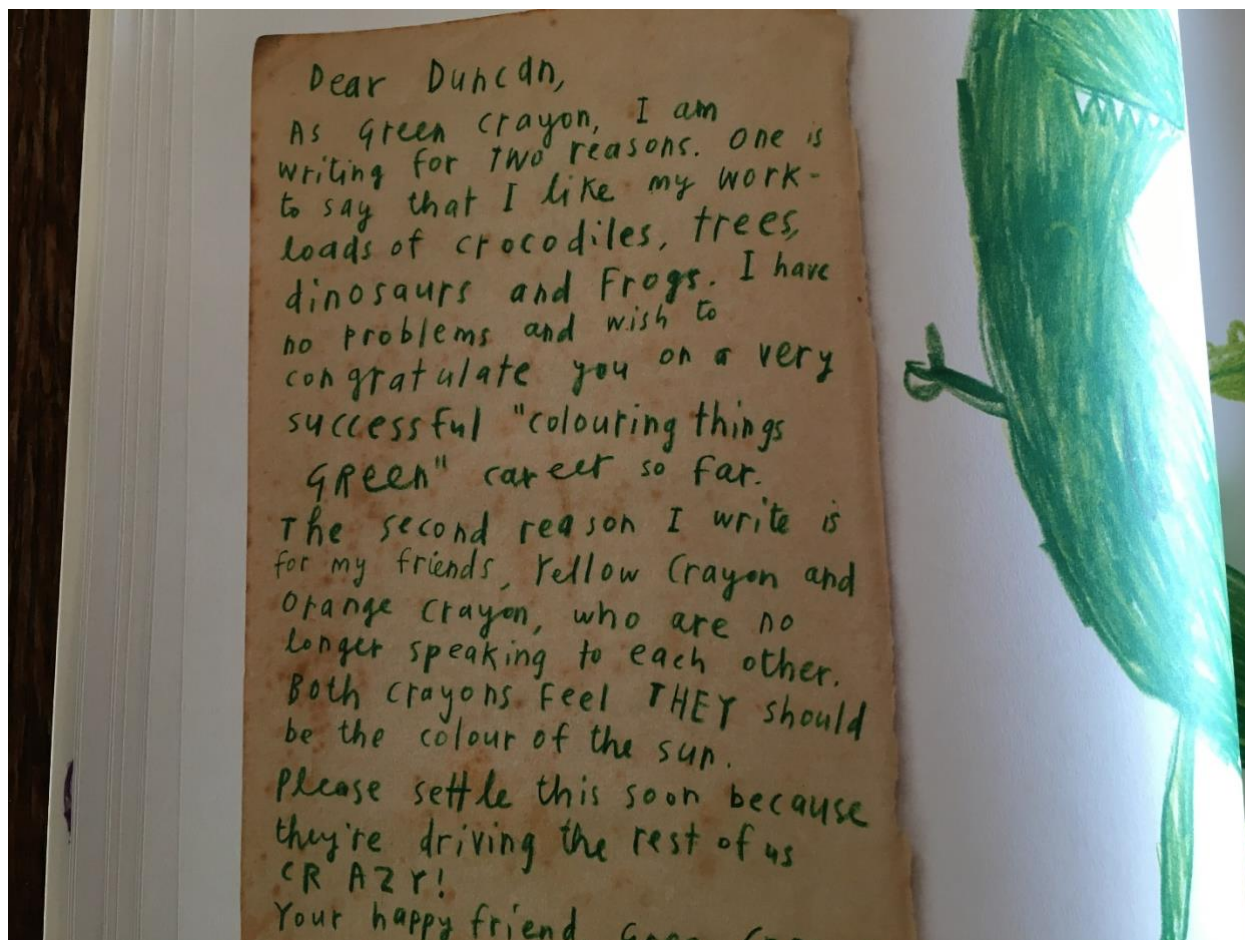 Dear Duncan,
As Green crayon, I am
writing for TWO reasons. One is
to say that I like my work-
loads of crocodiles, trees,
dinosaurs and Frogs. I have
no problems and wish to
congratulate you on a very
successful "colouring things
GReen" career so far.
The second reason I write is
for my friends, Yellow Crayon and
Orange Crayon, who are no
Longer speaking to each other.
Both crayons Feel THEY should
be the colour of the sun.
Please settle this soon because
they're driving the rest of us
CRAZY!
Your happy friend